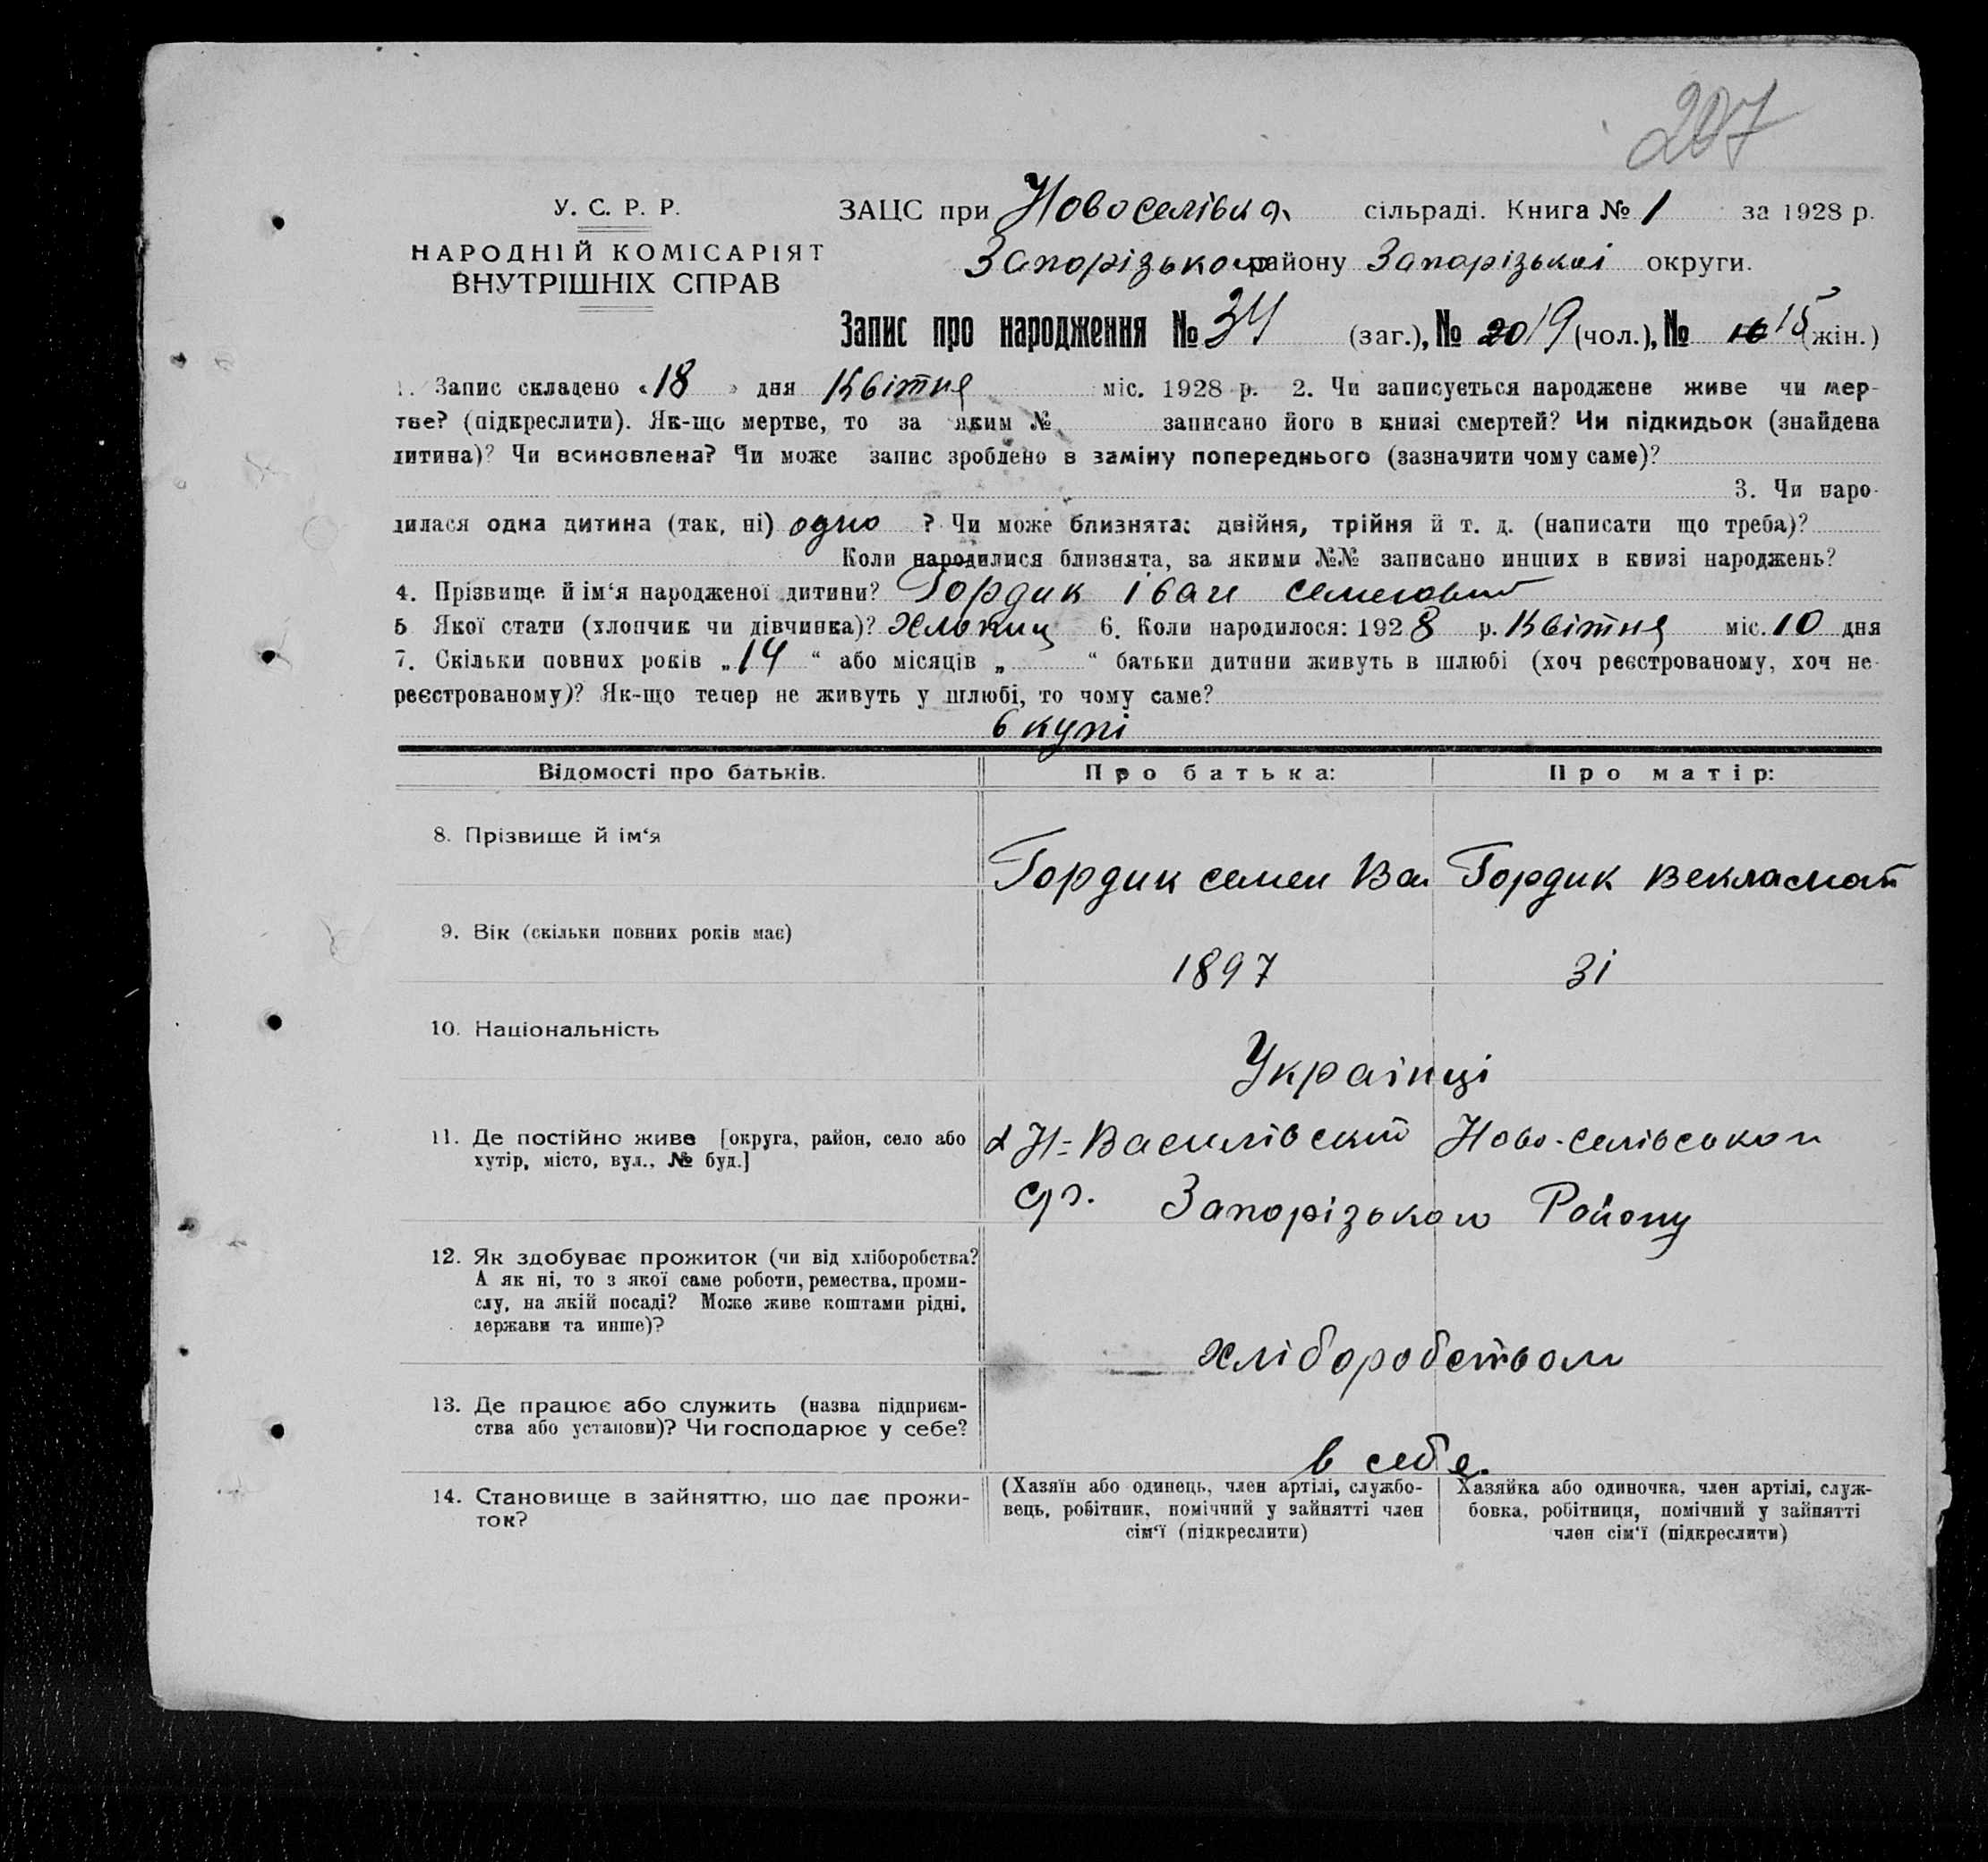 207
У. С. Р. Р.
НАРОДНІЙ КОМІСАРІЯТ
ВНУТРІШНІХ СПРАВ
ЗАЦС при Новоселівка сільраді. Книга № 1 за 1928 р.
Запорізького району Запорізької округи.
Запис про народження № 34 (заг.), № 20 19 (чол.), № 16 15 (жін.)
1. Запис складено « 18 » дня Квітня міс. 1928 р. 2. Чи записується народжене живе чи мер-
тве? (підкреслити). Як-що мертве, то за яким № записано його в книзі смертей? Чи підкидьок (знайдена
дитина)? Чи всиновлена? Чи може запис зроблено в заміну попереднього (зазначити чому саме)?
3. Чи наро-
дилася одна дитина (так, ні) одно ? Чи може близнята: двійня, трійня й т. д. (написати що треба)?
Коли народилися близнята, за якими №№ записано инших в книзі народжень?
4. Прізвище й ім‘я народженої дитини? Гордик іван семенович
5 Якої стати (хлопчик чи дівчинка)? Хлопиц 6. Коли народилося: 1928 р. Квітня міс. 10 дня
7. Скільки повних років „ 14 “ або місяців „ “ батьки дитини живуть в шлюбі (хоч реєстрованому, хоч не-
реєстрованому)? Як-що тепер не живуть у шлюбі, то чому саме?
вкупі
Відомості про батьків. Про батька: Про матір:
8. Прізвище й ім‘я
Гордик семен Ва Гордик Векла
9. Вік (скільки повних років має)
1897 31
10. Національність
Українці
11. Де постійно живе [округа, район, село або
хутір, місто, вул., № буд.]
Н-Василівский Ново-селівськои
с/р. Запорізького Району
12. Як здобуває прожиток (чи від хліборобства?
А як ні, то з якої саме роботи, ремества, проми-
слу, на якій посаді? Може живе коштами рідні,
держави та инше)?
хліборобством
13. Де працює або служить (назва підприєм-
ства або установи)? Чи господарює у себе?
в себе.
14. Становище в зайняттю, що дає прожи-
ток?
(Хазяїн або одинець, член артілі, службо-
вець, робітник, помічний у зайнятті член
сім‘ї (підкреслити)
Хазяйка або одиночка, член артілі, служ-
бовка, робітниця, помічний у зайнятті
член сім‘ї (підкреслити)